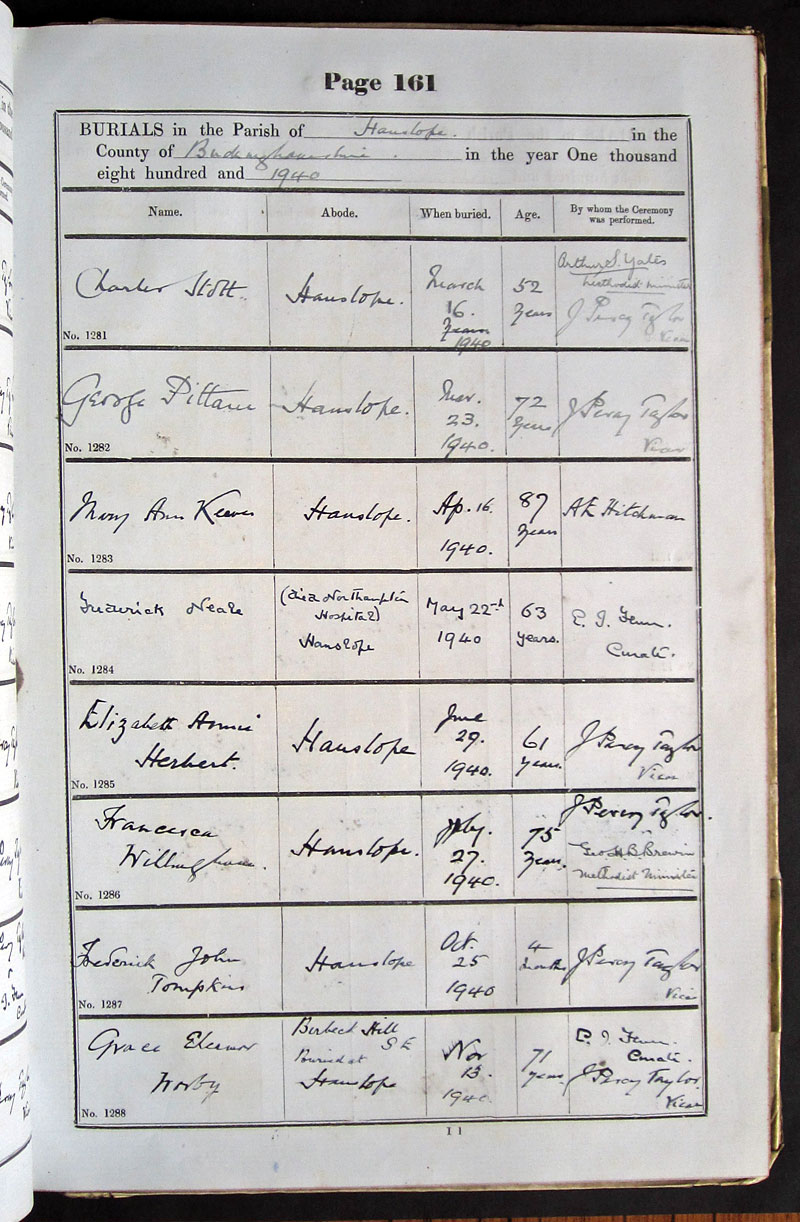 Page 161
BURIALS in the Parish of Hanslope. in the
County of Buckinghamshire. in the year One thousand
eight hundred and 1940
Name. Abode. When buried. Age. By whom the Ceremony was performed.
Charles Stott. Hanslope. March 16. Years 1940 52 Years Arthur S. Yates Methodist Minister J Percy Taylor Vicar
No. 1281
George Pittam Hanslope. Mar. 23. 1940. 72 Years J Percy Taylor Vicar
No. 1282
Mary Ann Keeves Hanslope. Ap. 16. 1940. 87 Years A E Hitchman
No. 1283
Frederick Neale (died Northampton Hospital) Hanslope May 22nd 1940 63 years. E. I. Fenn. Curate.
No. 1284
Elizabeth Annie Herbert. Hanslope June 29. 1940. 61 Years. J Percy Taylor Vicar
No. 1285
Francesca Willingham. Hanslope. July. 27. 1940. 75 Years. J Percy Taylor. Geo H. B. Brewin Methodist Minister
No. 1286
Frederick John Tompkins Hanslope Oct. 25 1940 4 months J Percy Taylor Vicar
No. 1287
Grace Eleanor Hanslope Buried at S E Nov 13. 1940. 71 years E. I. Fenn. Curate. J Percy Taylor. Vicar
No. 1288
11